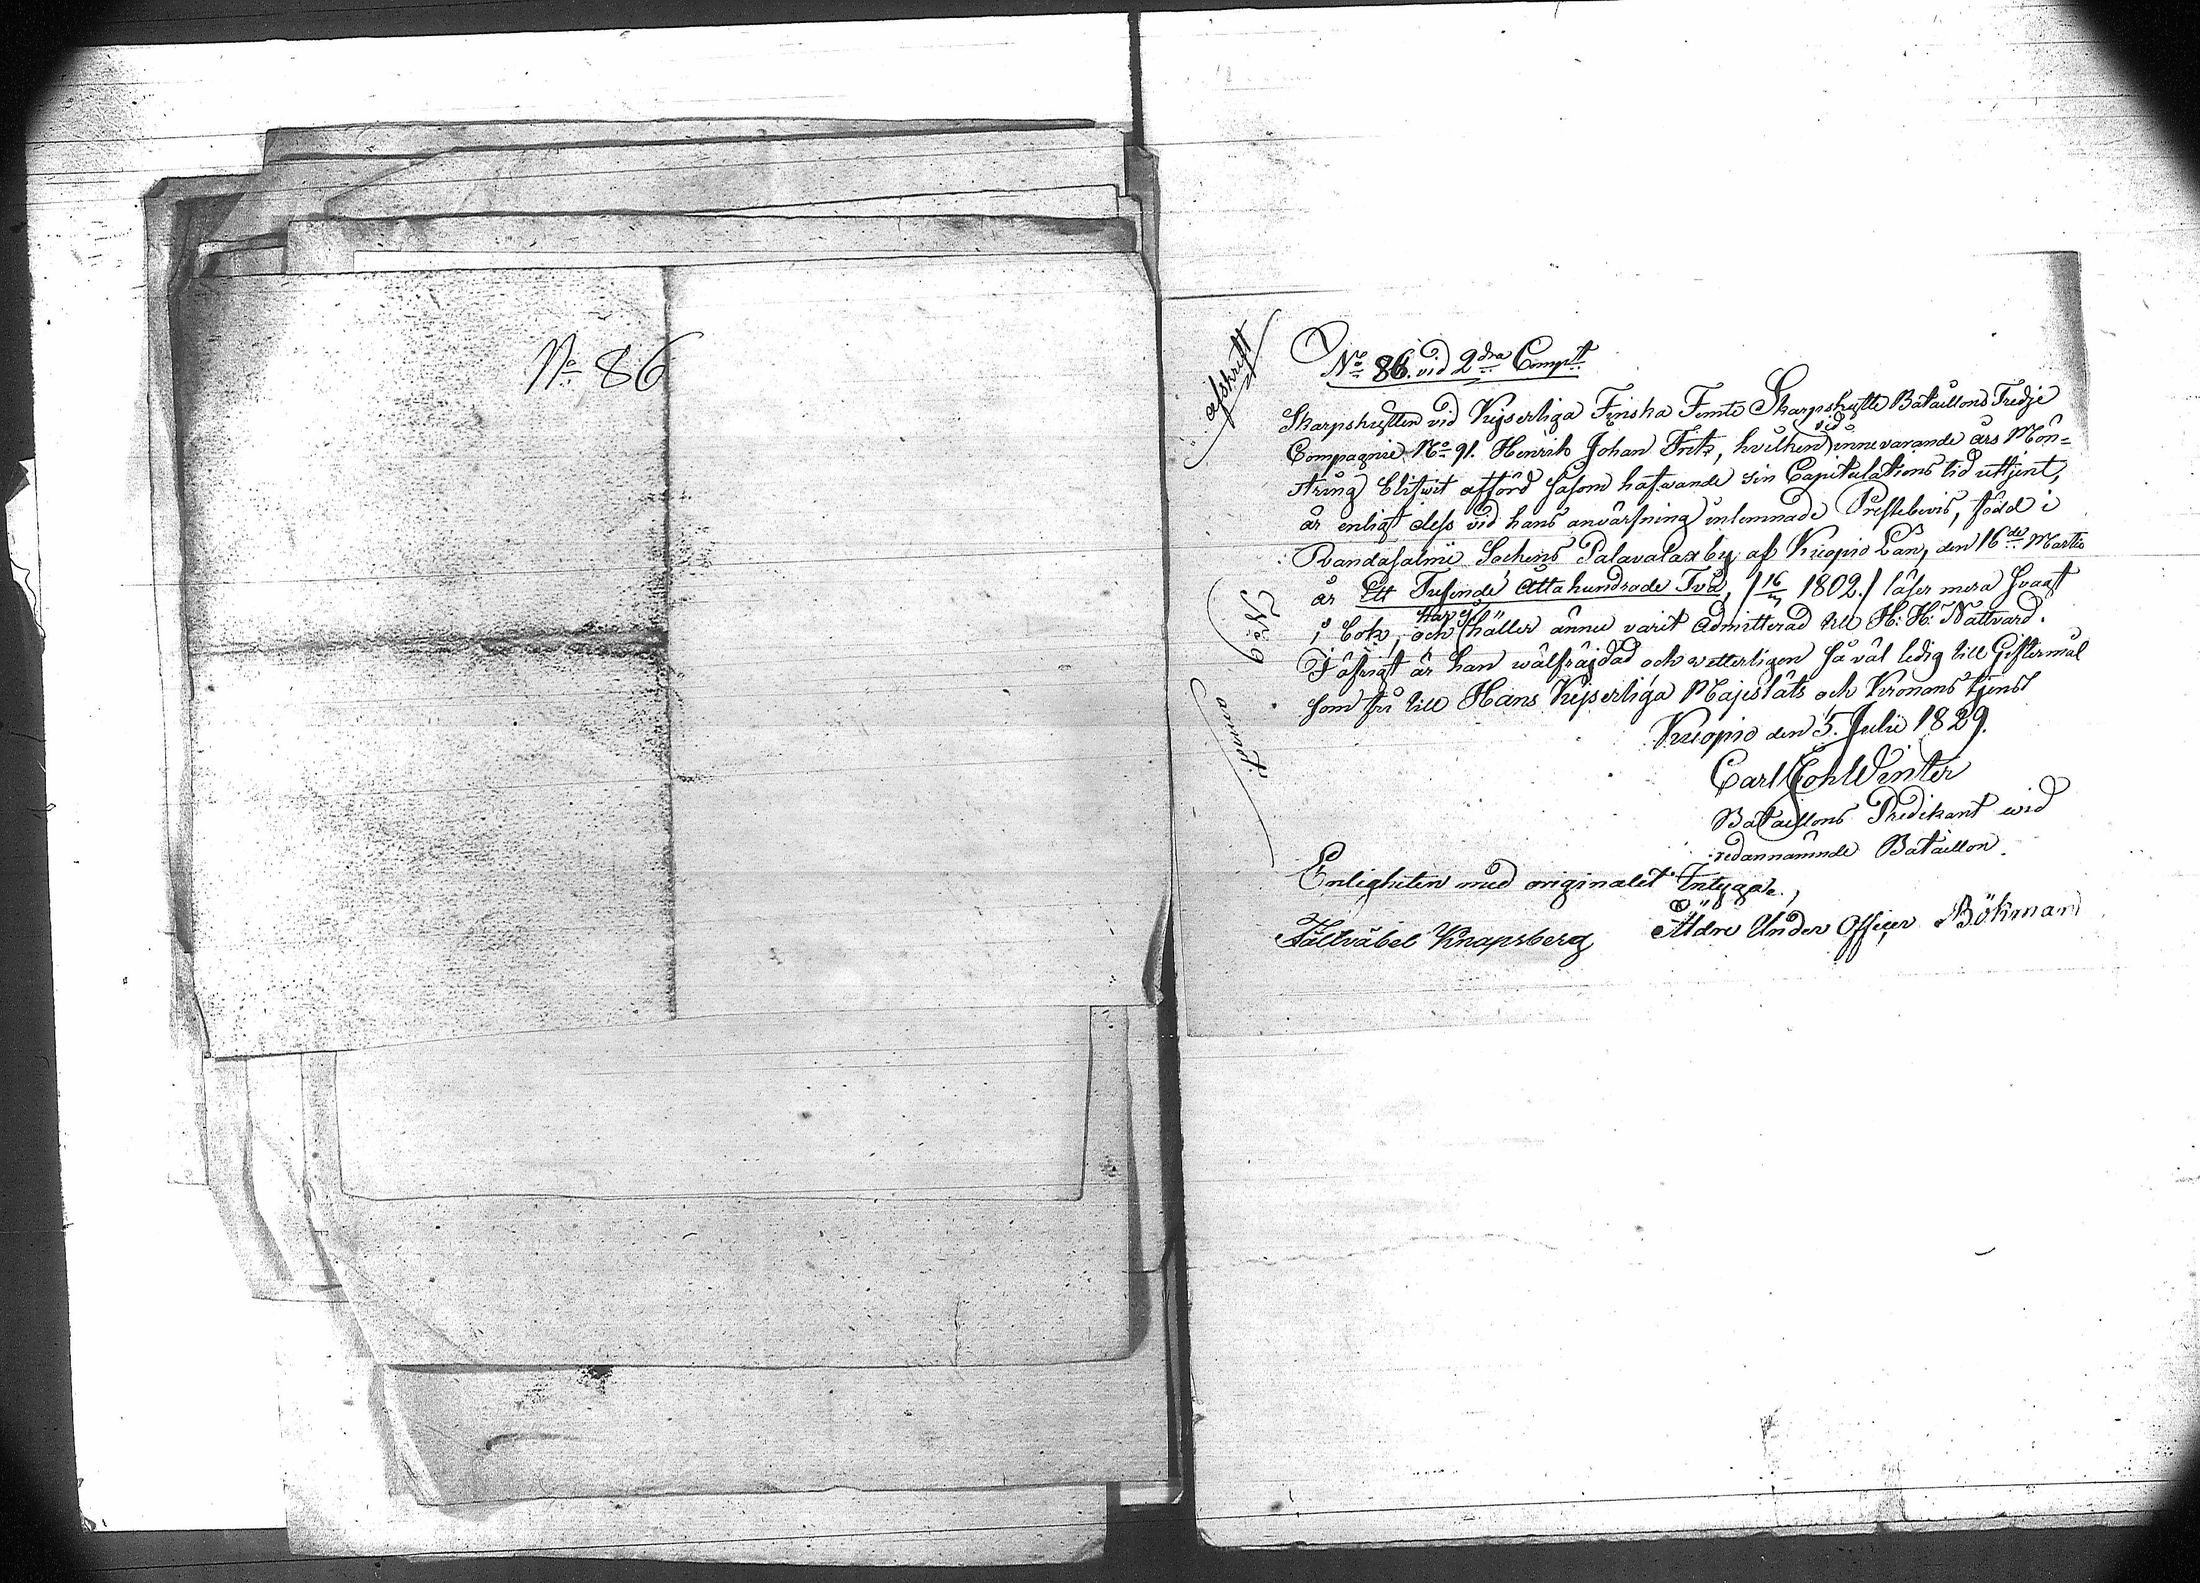 No 86
afskrift
No 86. vid 2dra Compt
Skarpskytten vid Kejserliga Finska Femte Skarpskytte Bataillons Tredje
Compagnie No 91. Henrik Johan Frits, hvilken vid innevarande års Mön-
string blifvit afförd såsom hafvande sin Capitulations tid uttjent,
är enligt dess vid hans anvärfning inlemnade Prestebevis, född i
Randasalmi Sockens Palavalax by af Kuopio Län, den 16de Martii
år Ett Tusende Åttahundrade Två, /16/3 1802./ läser mera svagt
i bok, och har ej häller ännu varit Admitterad till H: H: Nattvard.
I öfrigt är han wälfräjdad och vetterligen så väl ledig till Giftermål
som fri till Hans Kejserliga Majestäts och Kronans tjenst
Kuopio den 5. Julii 1829.
Carl Joh Winter
Bataillons Predikant wid
redannämnde Bataillon.
Enligheten med originalet Intyga.,
Fältväbel Knapsberg Äldre Under Officer Bökman
No 9